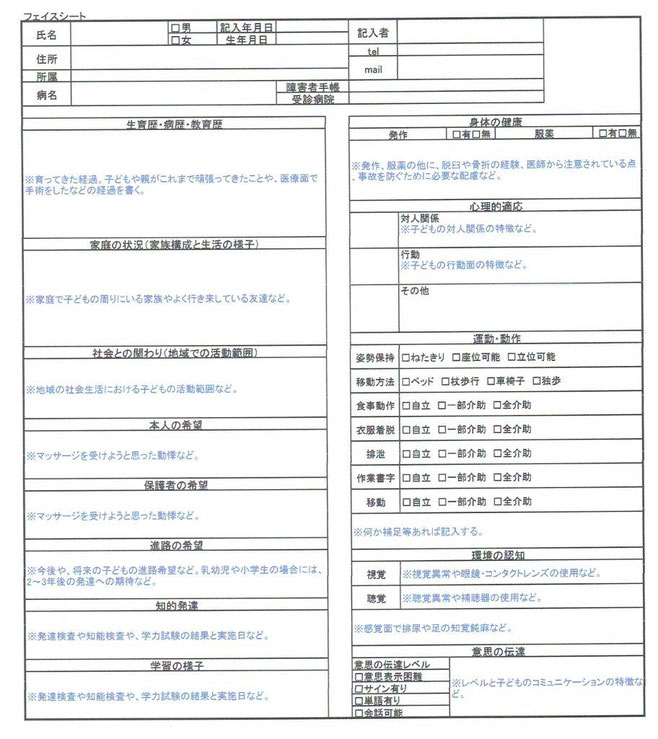 フェイスシート
氏名 □男 記入年月日 記入者
□女 生年月日
住所 tel
mail
所属
病名 障害者手帳
受診病院
生育歴・病歴・教育歴
※育ってきた経過。子どもや親がこれまで頑張ってきたことや、医療面で
手術をしたなどの経過を書く。
家庭の状況（家族構成と生活の様子）
※家庭で子どもの周りにいる家族やよく行き来している友達など。
社会との関わり（地域での活動範囲）
※地域の社会生活における子どもの活動範囲など。
本人の希望
※マッサージを受けようと思った動悸など。
保護者の希望
※マッサージを受けようと思った動悸など。
進路の希望
※今後や、将来の子どもの進路希望など。乳幼児や小学生の場合には、
2～3年後の発達への期待など。
知的発達
※発達検査や知能検査や、学力試験の結果と実施日など。
学習の様子
※発達検査や知能検査や、学力試験の結果と実施日など。
身体の健康
発作 □有□無 服薬 □有□無
※発作、服薬の他に、脱臼や骨折の経験、医師から注意されている点
、事故を防ぐために必要な配慮など。
心理的適応
対人関係
※子どもの対人関係の特徴など。
行動
※子どもの行動面の特徴など。
その他
運動・動作
姿勢保持 □ねたきり □座位可能 □立位可能
移動方法 □ベッド □杖歩行 □車椅子 □独歩
食事動作 □自立 □一部介助 □全介助
衣服着脱 □自立 □一部介助 □全介助
排泄 □自立 □一部介助 □全介助
作業書字 □自立 □一部介助 □全介助
移動 □自立 □一部介助 □全介助
※何か補足等あれば記入する。
環境の認知
視覚 ※視覚異常や眼鏡・コンタクトレンズの使用など。
聴覚 ※聴覚異常や補聴器の使用など。
※感覚面で排尿や足の知覚鈍麻など。
意思の伝達
意思の伝達レベル
□意思表示困難
□サイン有り
□単語有り
□会話可能
※レベルと子どものコミュニケーションの特徴な
ど。